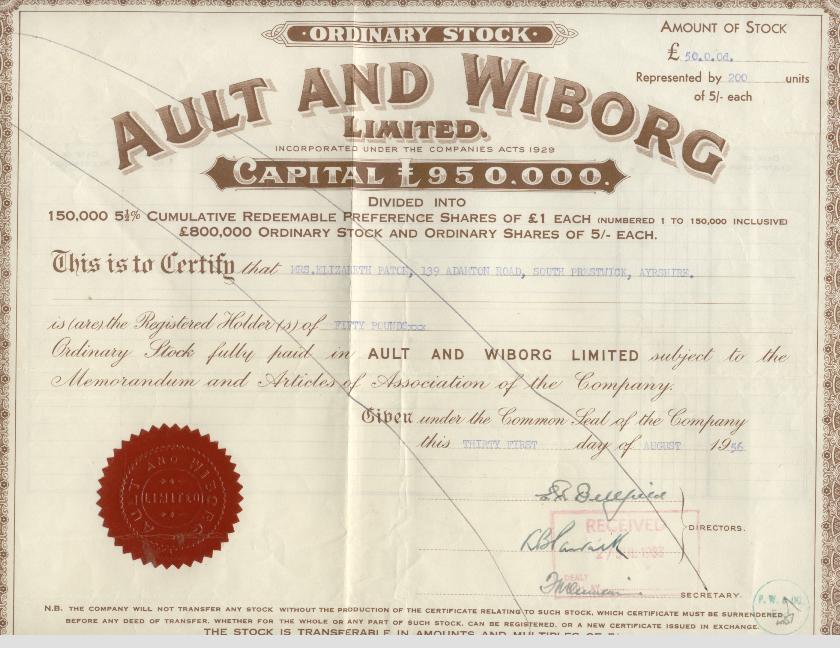 · ORDINARY STOCK ·
AMOUNT OF STOCK
£ 50.0.0d.
Represented by 200 units
of 5/- each
AULT AND WIBORG
LIMITED.
INCORPORATED UNDER THE COMPANIES ACTS 1929
CAPITAL £950,000.
DIVIDED INTO
150,000 5½% CUMULATIVE REDEEMABLE PREFERENCE SHARES OF £1 EACH (NUMBERED 1 TO 150,000 INCLUSIVE)
£800,000 ORDINARY STOCK AND ORDINARY SHARES OF 5/- EACH.
This is to Certify that MRS.ELIZABETH PATON, 139 ADAMTON ROAD, SOUTH PRESTWICK, AYRSHIRE.
is (are) the Registered Holder(s) of FIFTY POUNDSxxx
Ordinary Stock fully paid in AULT AND WIBORG LIMITED subject to the
Memorandum and Articles of Association of the Company.
Given under the Common Seal of the Company
this THIRTY FIRST day of AUGUST 1956
AULT AND WIBORG
LIMITED
RECEIVED
DIRECTORS.
SECRETARY.
N.B. THE COMPANY WILL NOT TRANSFER ANY STOCK WITHOUT THE PRODUCTION OF THE CERTIFICATE RELATING TO SUCH STOCK, WHICH CERTIFICATE MUST BE SURRENDERED
BEFORE ANY DEED OF TRANSFER, WHETHER FOR THE WHOLE OR ANY PART OF SUCH STOCK, CAN BE REGISTERED, OR A NEW CERTIFICATE ISSUED IN EXCHANGE.
THE STOCK IS TRANSFERABLE IN AMOUNTS AND MULTIPLES OF